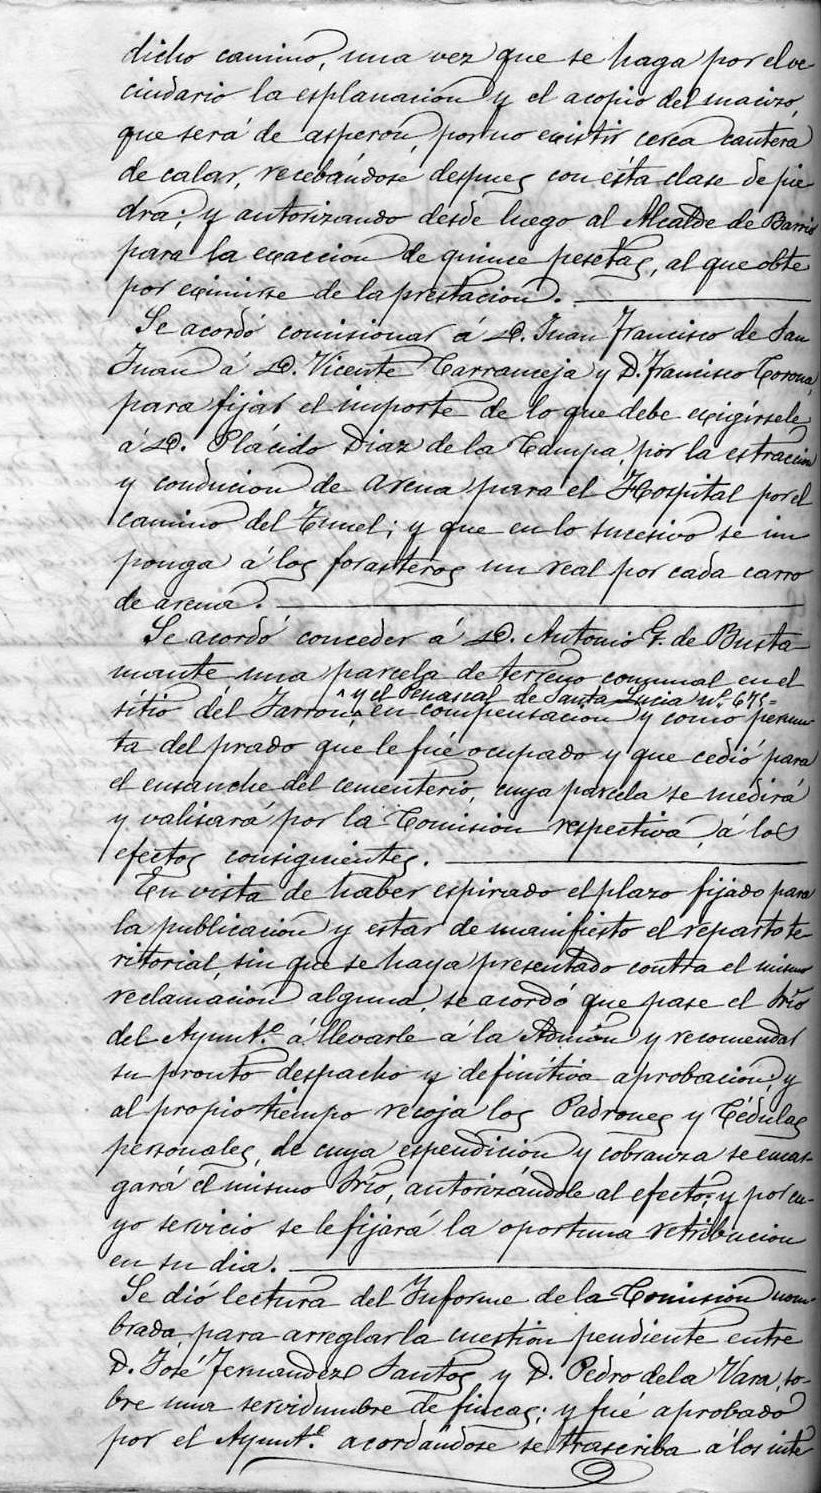 dicho camino, una vez que se haga por el ve-
cindario la esplanacion y el acopio del macizo,
que será de asperon, por no existir cerca cantera
de calar, recebándose despues con ésta clase de pie-
dra; y autorizando desde luego al Alcalde de Barrio
para la exaccion de quince pesetas, al que obte
por eximirse de la prestacion.
Se acordó comisionar á D. Juan Francisco de San
Juan á D. Vicente Carranceja y D. Francisco Corona,
para fijar el importe de lo que debe exigírsele
á D. Plácido Diaz de la Campa, por la estraccion
y conducion de arena para el Hospital por el
camino del Tunel; y que en lo sucesivo se im
ponga á los forasteros un real por cada carro
de arena.
Se acordó conceder á D. Antonio G. de Busta-
mante una parcela de terreno comunal en el
y el Peñascal de Santa Lucia nº. 675=
sitio del Jarron en compensacion y como permu-
ta del prado que le fué ocupado y que cedió para
el ensanche del cementerio, cuya parcela se medirá
y valisará por la Comision respectiva, á los
efectos consiguientes.
En vista de haber espirado el plazo fijado para
la publicacion y estar de manifiesto el reparto te-
rritorial, sin que se haya presentado contra el mismo
reclamacion alguna, se acordó que pase el Srio
del Ayuntº. á llevarle á la Admón y recomendar
su pronto despacho y definitiva aprobacion, y
al propio tiempo recoja los Padrones y Cédulas
personales, de cuya espendicion y cobranza se encar-
gará el mismo Srio, autorizándole al efecto; y por cu-
yo servicio se le fijará la oportuna retribucion
en su dia.
Se dió lectura del Informe de la Comision nom-
brada para arreglar la cuestion pendiente entre
D. José Fernandez Santos y D. Pedro de la Vara, so-
bre una servidumbre de fincas; y fué aprobado
por el Ayuntº. acordándose se trascriba á los inte